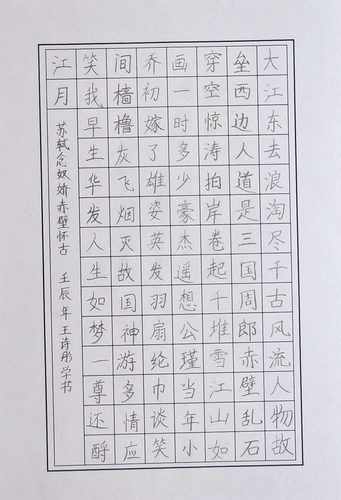 大江东去浪淘尽千古风流人物故
垒西边人道是三国周郎赤壁乱石
穿空惊涛拍岸卷起千堆雪江山如
画一时多少豪杰遥想公瑾当年小
乔初嫁了雄姿英发羽扇纶巾谈笑
间樯橹灰飞烟灭故国神游多情应
笑我早生华发人生如梦一尊还酹
江月
苏轼念奴娇赤壁怀古 壬辰年王诗彤学书